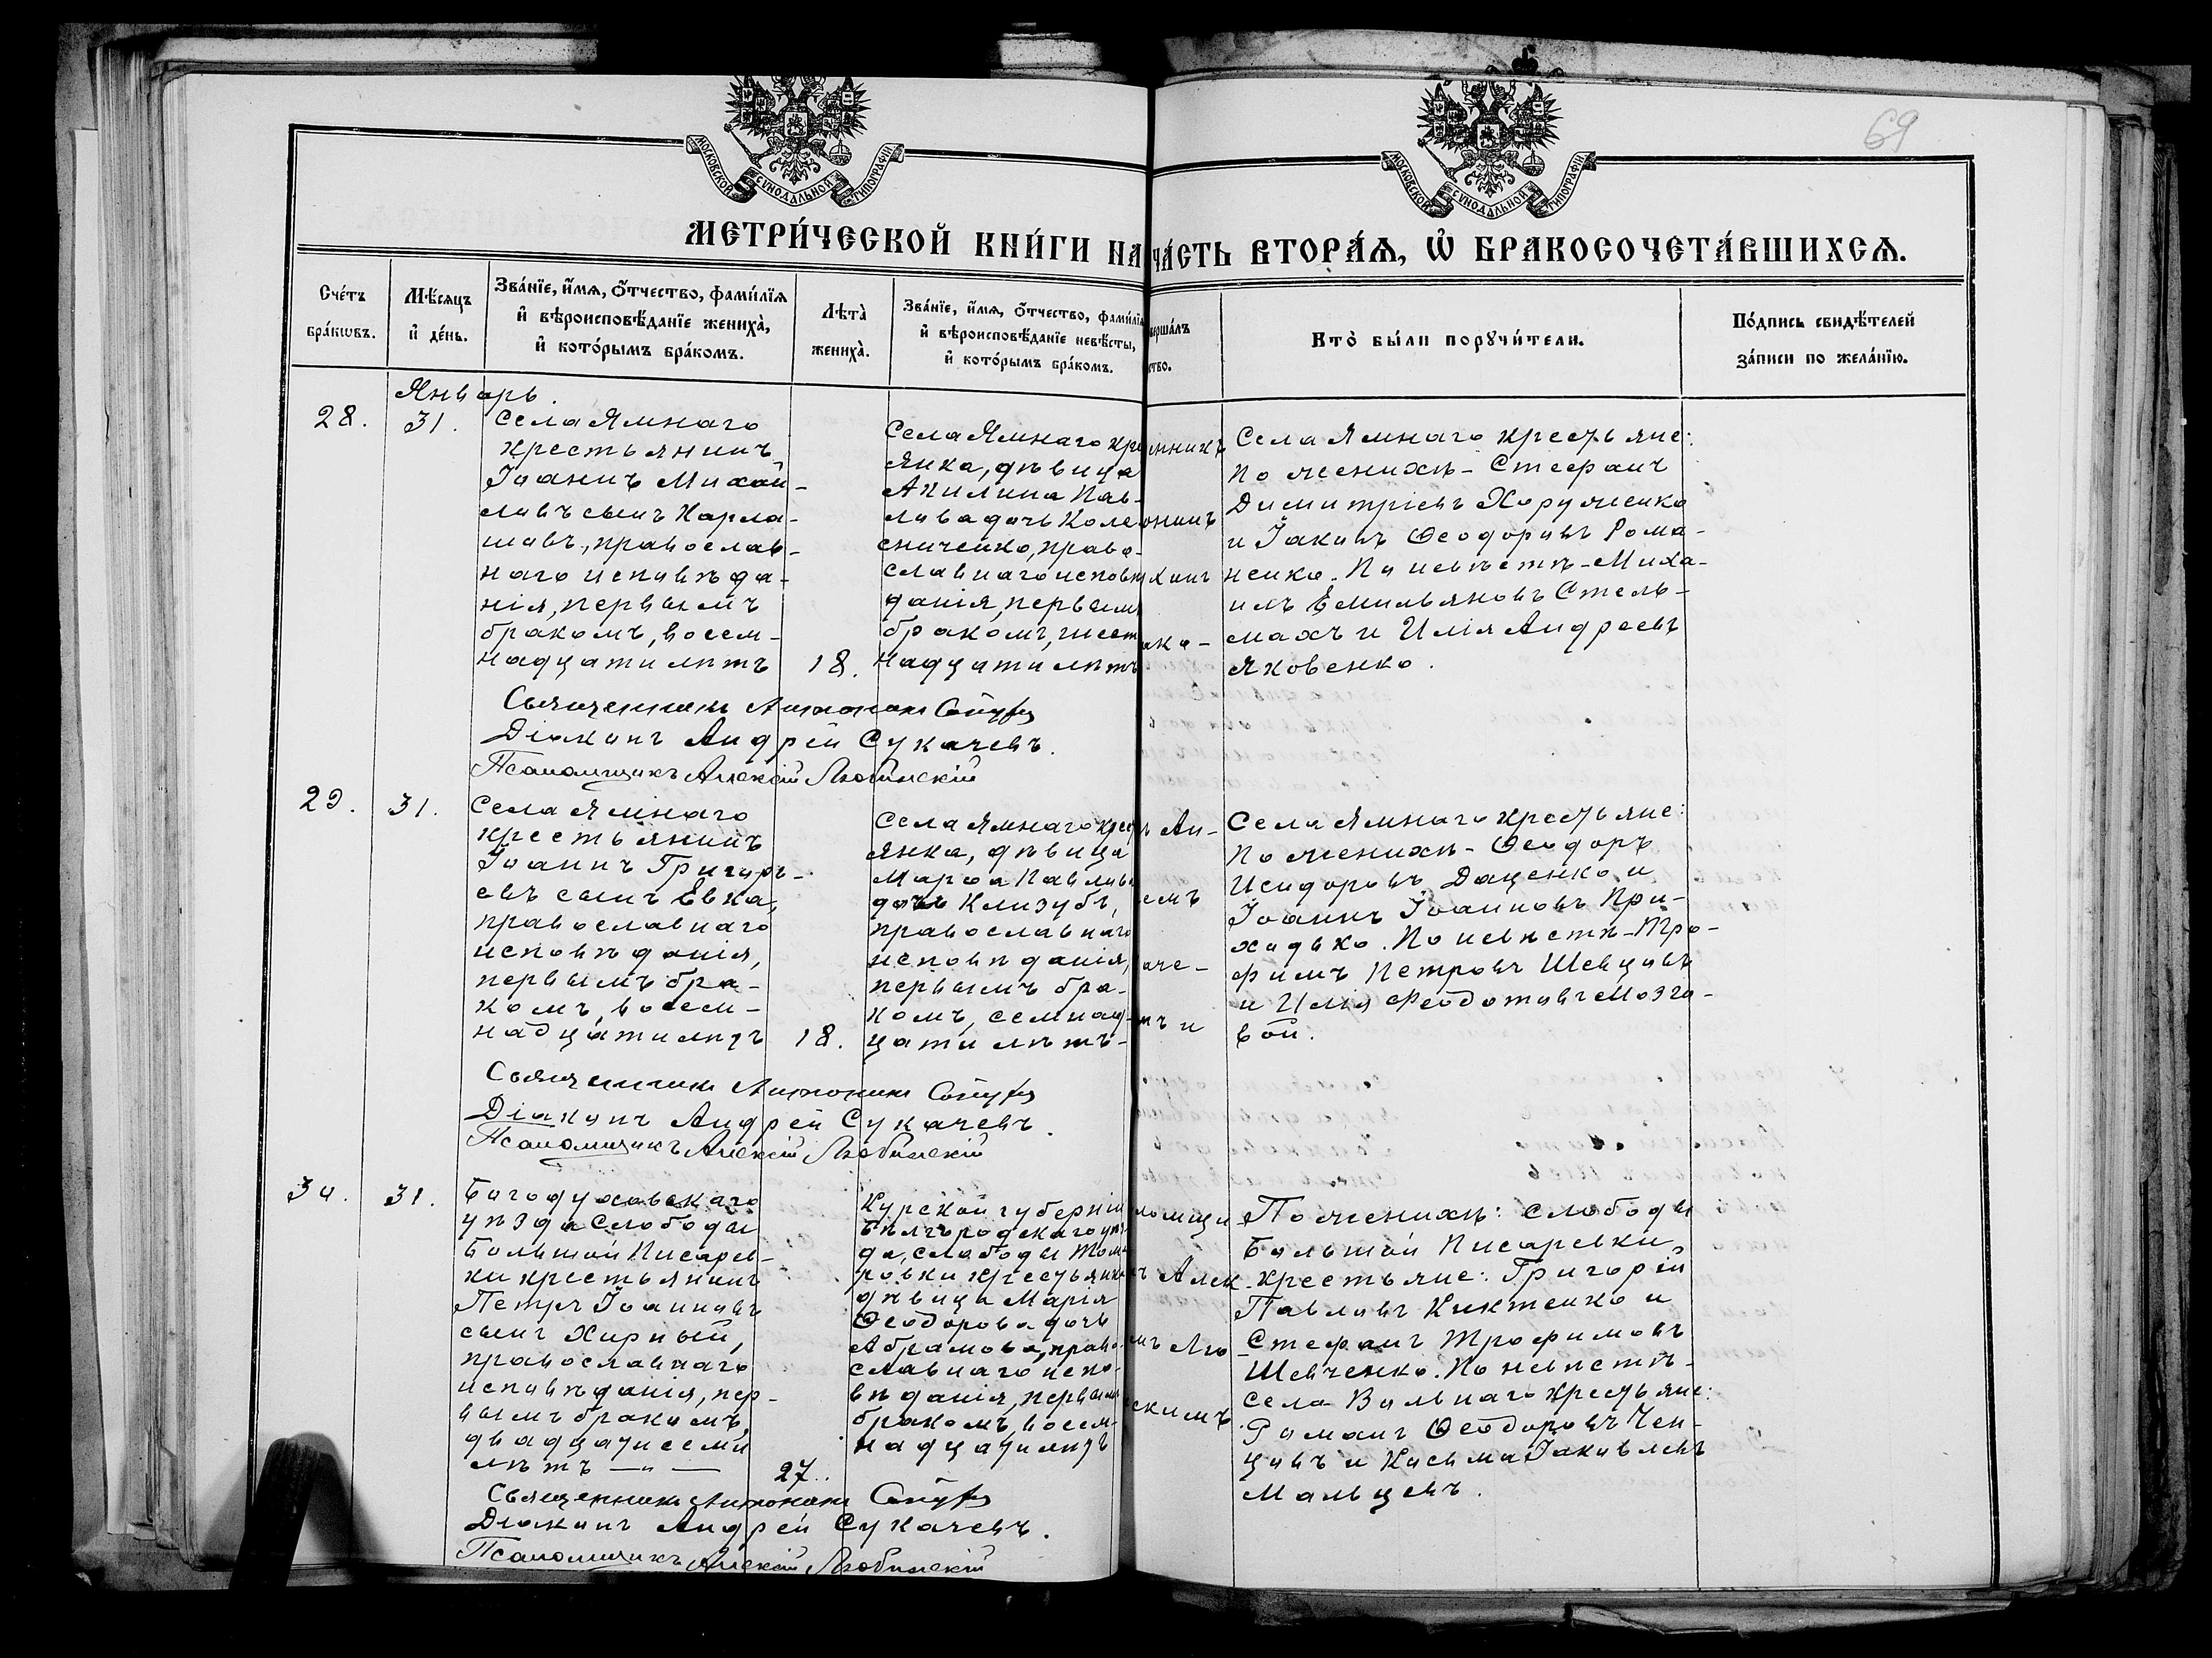 69
МОСКОВСКОЙ СѴНОДАЛЬНОЙ ТИПОГРАФІИ
МОСКОВСКОЙ СѴНОДАЛЬНОЙ ТИПОГРАФІИ
МЕТРИ́ЧЕСКОЙ КНИ́ГИ НА
ЧА́СТЬ ВТОРА́Ѧ, Ѡ҆ БРАКОСОЧЕТА́ВШИХСѦ.
Сче́тъ
бра́кωвъ.
Мѣ́сяцъ
и҆ де́нь.
Зва́нїе, и҆́мѧ, ѻ҆́тчество, фами́лїѧ
и҆ вѣроисповѣ́данїе жениха̀,
и҆ кото́рымъ бра́комъ.
Лѣта̀
жениха̀.
Зва́нїе, и҆́мѧ, ѻ҆́тчество, фами́лїѧ
и҆ вѣроисповѣ́данїе невѣ́сты,
и҆ кото́рымъ бра́комъ.
вершáлъ
ство.
Кто̀ бы́ли порꙋчи́тели.
По́дпись свидѣ́телей
за́писи по жела́нїю.
Январь.
28.
31.
Села Ямнаго
крестьянинъ
Іоаннъ Михаи-
ловъ сынъ Карла-
шовъ, православ-
наго исповѣда-
нія, первымъ
бракомъ, восем-
надцати лѣтъ
18.
Села Ямнаго кре
янка, дѣвица
Акилина Пав-
лова дочь Коле
сниченко, право-
славнаго исповѣ
данія, первымъ
бракомъ, шест
надцати лѣтъ
енникъ
онинъ
конъ
ака-
Села Ямнаго крестьяне:
По женихѣ - Стефанъ
Димитріевъ Хоруженко
и Іаковъ Ѳеодоровъ Рома-
ненко. По невѣстѣ - Миха-
илъ Емильяновъ Стель-
махъ и Илія Андреевъ
Яковенко.
Священникъ Антонинъ
Діаконъ Андрей Сукачевъ.
Псаломщикъ Алексій Любинскій
29.
31.
Села Ямнаго
крестьянинъ
Іоаннъ Григорь-
евъ сынъ Евка,
православнаго
исповѣданія,
первымъ бра-
комъ, восем-
надцати лѣтъ
18.
Села Ямнаго крест
янка, дѣвица
Марѳа Павлова
дочь Клизубъ,
православнаго
исповѣданія,
первымъ бра-
комъ, семнад-
цати лѣтъ-
ъ Ан-
емъ
аче-
мъ и
Села Ямнаго крестьяне:
По женихѣ - Ѳеодоръ
Исидоровъ Даценко и
Іоаннъ Іоанновъ При-
ходько. По невѣстѣ - Тро-
фимъ Петровъ Шевцовъ
и Илія Феодотовъ Мозго-
вой.
Священникъ Антонинъ
Діаконъ Андрей Сукачевъ.
Псаломщикъ Алексій Любинскій
30.
31.
Богодуховскаго
уѣзда слободы
Большой Писарев-
ки крестьянинъ
Петръ Іоанновъ
сынъ Хирный,
православнаго
исповѣданія, пер-
вымъ бракомъ,
двадцати семи
лѣтъ —"—
27.
Курской губерніи
Бѣлгородскаго уѣз
да, слободы Тома
ровки крестьянка
дѣвица Марія
Ѳеодорова дочь
Абрамова, право-
славнаго испо-
вѣданія, первымъ
бракомъ, восем-
надцати лѣтъ
ломщи
ъ Алек
мъ Лю
скимъ
По женихѣ: слободы
Большой Писаревки,
крестьяне: Григорій
Павловъ Киктенко и
Стефанъ Трофимовъ
Шевченко. По невѣстѣ -
села Вольнаго крестьяне:
Романъ Ѳеодоровъ Чен-
цовъ и Косьма Іаковлевъ
Мальцевъ.
Священникъ Антонинъ
Діаконъ Андрей Сукачевъ.
Псаломщикъ Алексій Любинскій